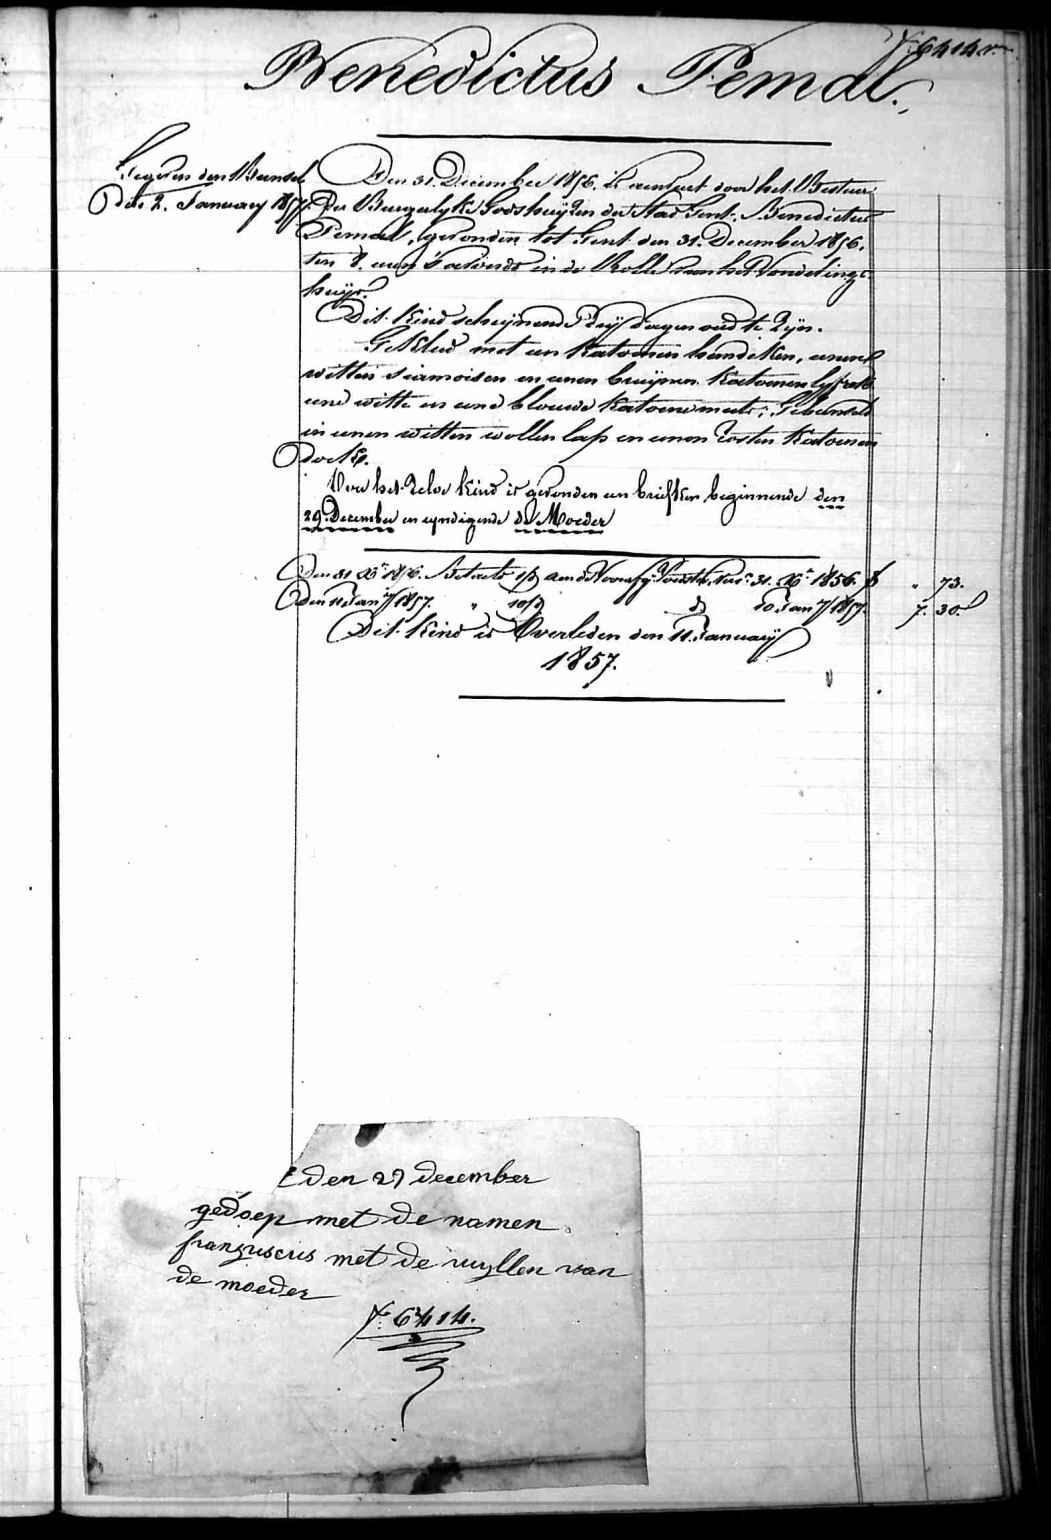 N. 6414.
Benedictus Pemal.
Gegeven den
Den 2. January 1857.
Den 31. December 1856. is door het Bestuur
der Burgerlyke Godshuyzen der Stad Gent, Benedictus
Pemal, gevonden tot Gent den 31. December 1856.
ten 8. uren 's avonds in de Rolle van het Vondelings-
huys.
Dit Kind schynende dry dagen oud te Zyn.
Gekleed met een Katoenen hemdeken, eenen
witten siamoisen en eenen bruynen Katoenen
eene witte en eene blouwe Katoene muts; Gebunseld
in eenen witten wollen lap en eenen rosten Katoenen
doek.
Voor het Zelve Kind is gevonden een briefken beginnende den
29. December en eyndigende de Moeder
Den 31. Xbr 1856. Betaeld aen de 31. Xbr 1856. f " 73.
Den 11. Jany 1857. " do Jany 1857. 7. 30.
Dit Kind is Overleden den 11. January
1857.
den 29 december
gedoep met de namen
franzuscus met de wyllen van
de moeder
N. 6414.